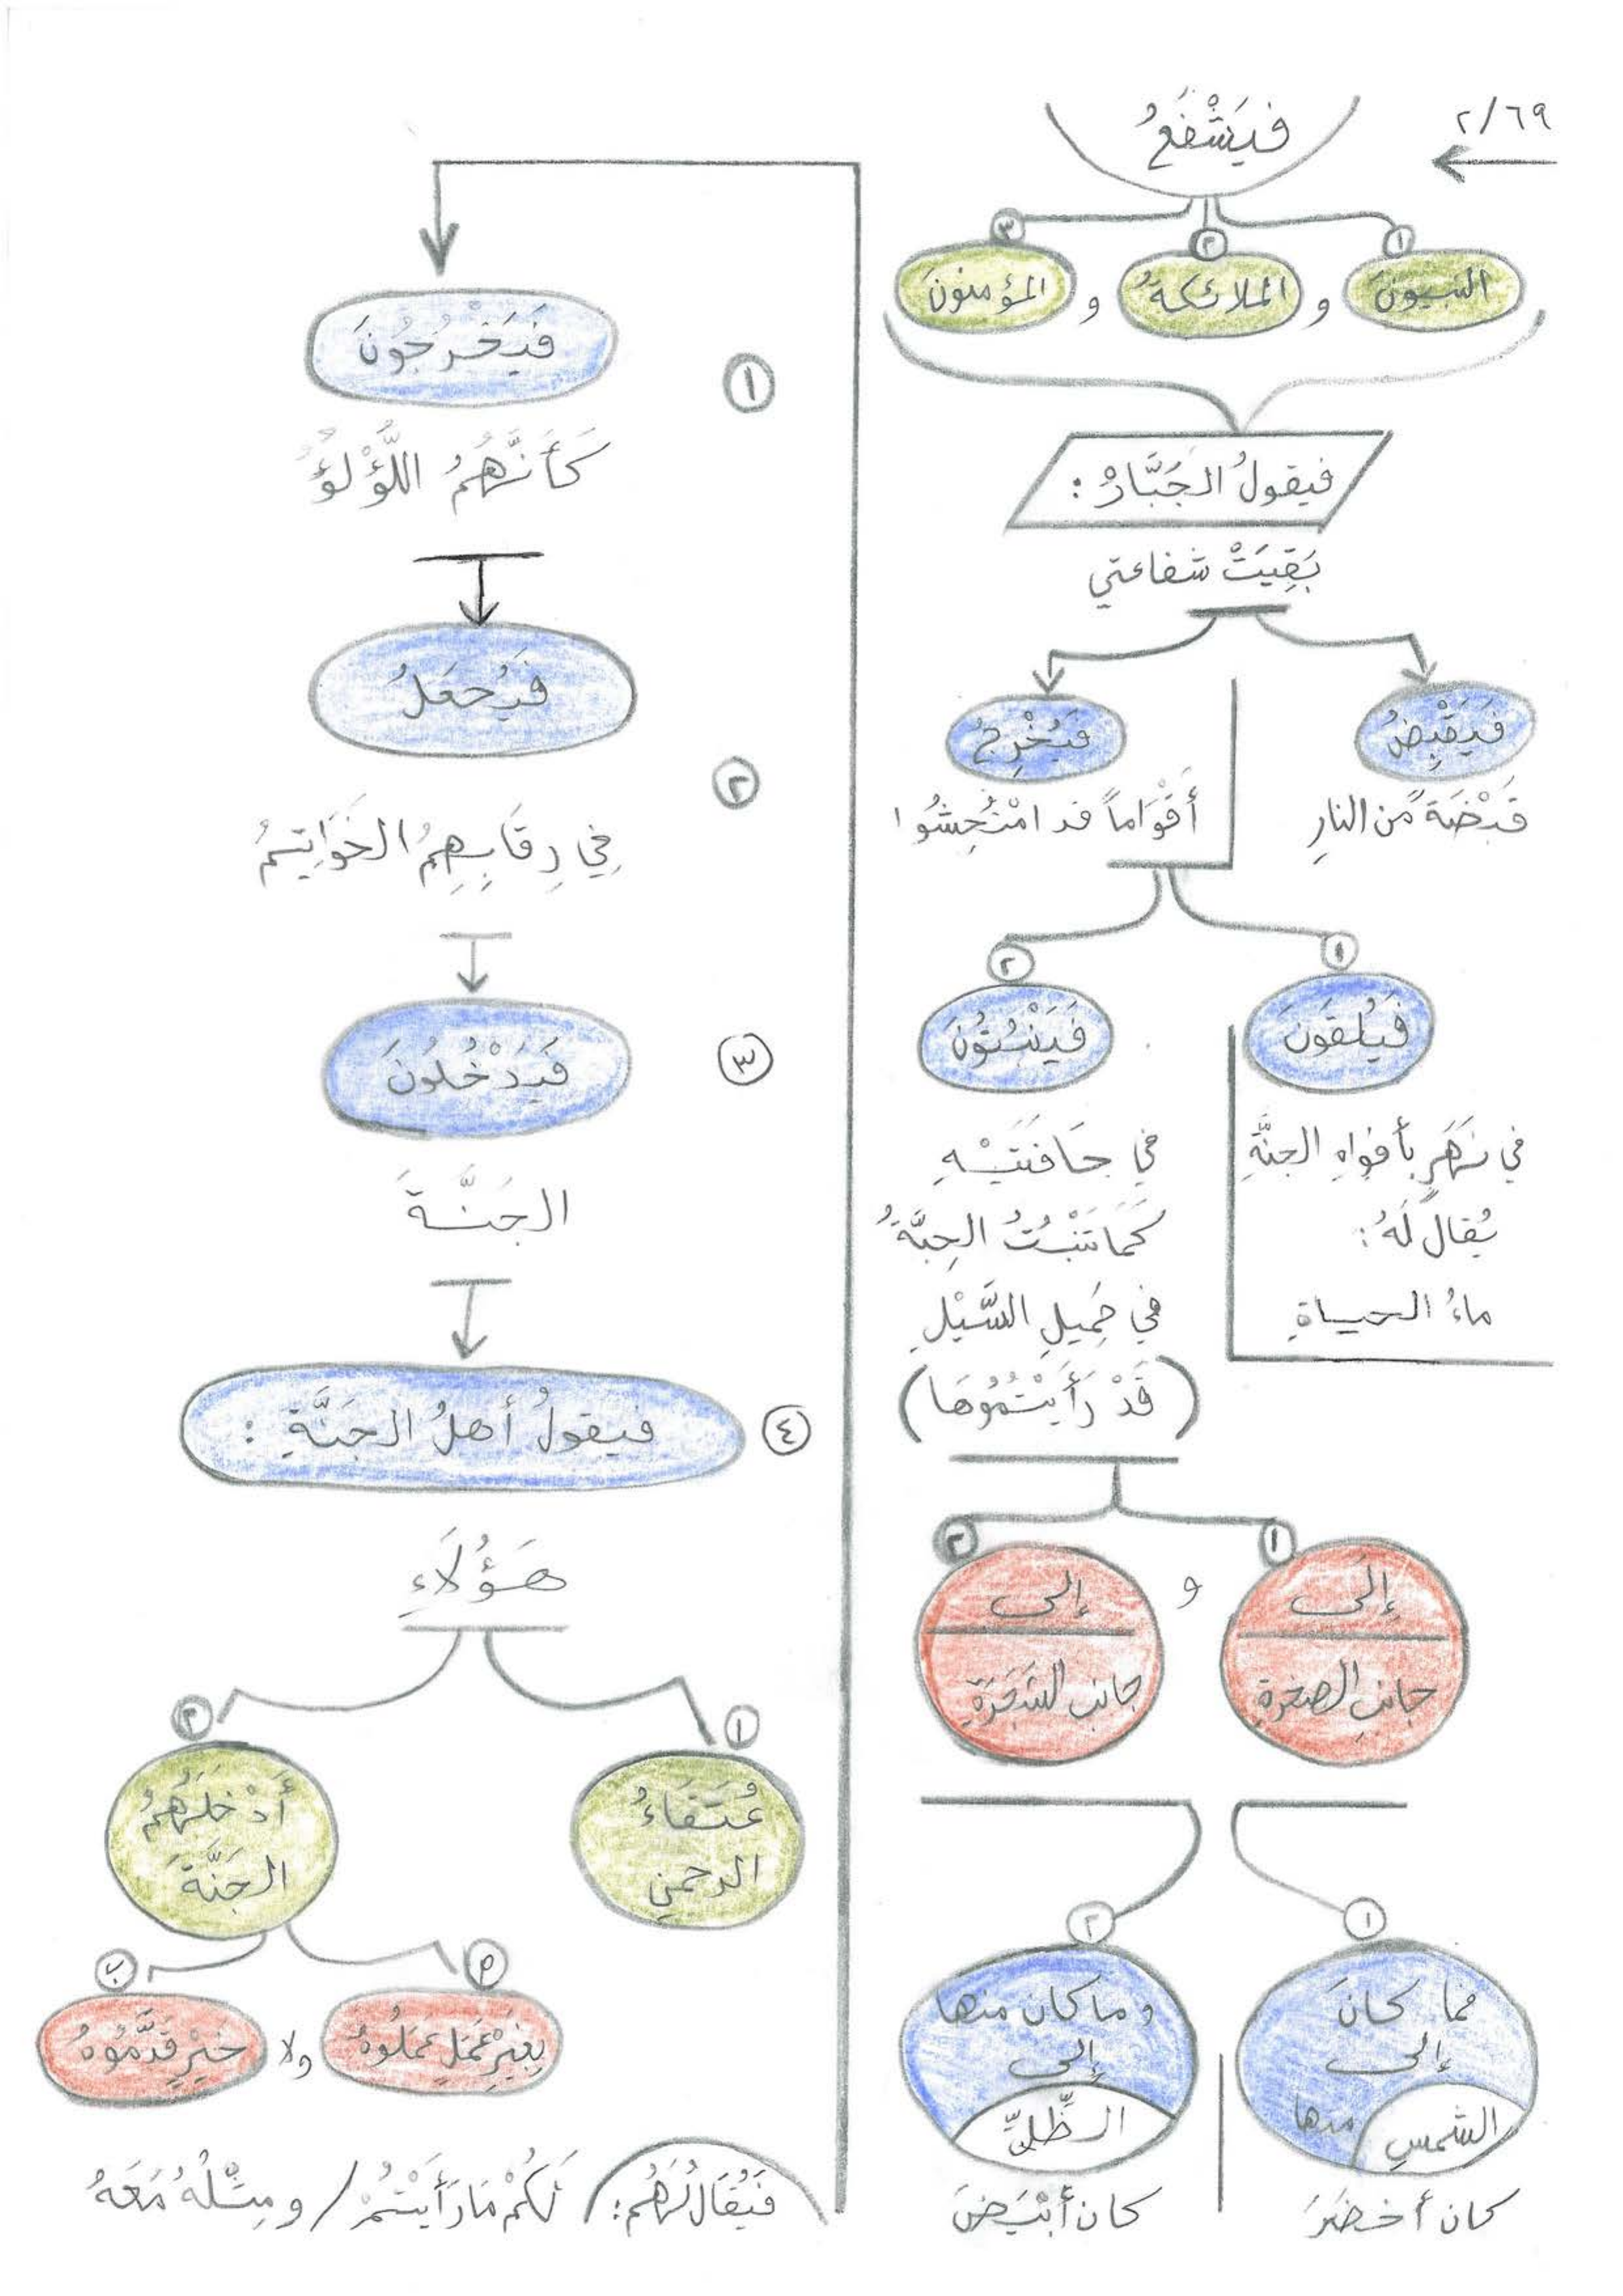 ٢/٦٩
فَيَشْفَعُ
١
٢
٣
النبيونَ و الملائكةُ و المؤمنونَ
فيقولُ الجَبَّارُ :
بَقِيَتْ شفاعتي
فَيَقْبِضُ
قَبْضَةً من النارِ
فَيُخْرِجُ
أَقْوَاماً قد امْتُحِشُوا
١
فَيُلقَونَ
في نَهَرٍ بأفواهِ الجنَّةِ
يُقالُ لَهُ :
ماءُ الحياةِ
٢
فَيَنْبُتُونَ
في حَافَتَيْهِ
كَمَا تَنْبُتُ الحِبَّةُ
في حَمِيلِ السَّيْلِ
(قَدْ رَأَيْتُمُوهَا)
١
إِلَى
جانبِ الصخرةِ
و
٢
إلى
جانبِ الشَّجَرَةِ
١
فما كانَ
إلى
الشمسِ منها
كان أخضَرَ
٢
وما كان منها
إلى
الظِّلِّ
كان أبْيَضَ
١
فَيَخْرُجُونَ
كَأَنَّهُمُ اللُّؤْلُؤُ
٢
فَيُجعَلُ
فِي رِقَابِهِمُ الخَوَاتِيمُ
٣
فَيَدْخُلُونَ
الجَنَّةَ
٤
فيقولُ أهلُ الجَنَّةِ :
هَؤُلَاءِ
١
عُتَقَاءُ
الرحمنِ
٢
أَدْخَلَهُمُ
الجَنَّةَ
بِغَيْرِ عَمَلٍ عَمَلُوهُ ولا خَيْرٍ قَدَّمُوهُ
فَيُقَالُ لَهُم : لَكُمْ مَا رَأَيْتُمْ / و مِثْلُهُ مَعَهُ